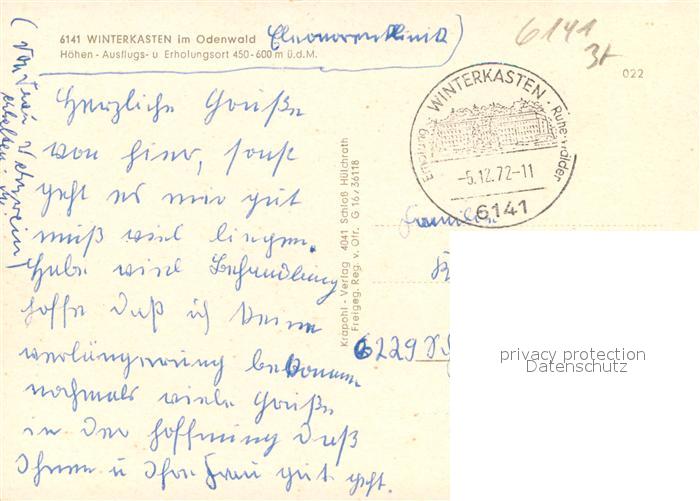 6141 WINTERKASTEN im Odenwald
Höhen - Ausflugs- u Erholungsort 450-600 m ü.d.M.
Eleonorenklinik
6141
022
WINTERKASTEN · Ruhe Wälder
Erholung
-5.12.72-11
6141
Herzliche Grüße
von hier, sonst
geht es mir gut
muß viel liegen.
Habe viel Behandlung
hoffe daß ich keine
verlängerung bekomme
nochmals viele Grüße
in der hoffnung daß
Ihnen u Ihre Frau gut geht.
(Von Frau
erhalten
Krapohl - Verlag 4041 Schloß Hülchrath
Freigeg. Reg. v. Ofr. G 16/36118
Familie
6229
privacy protection
Datenschutz